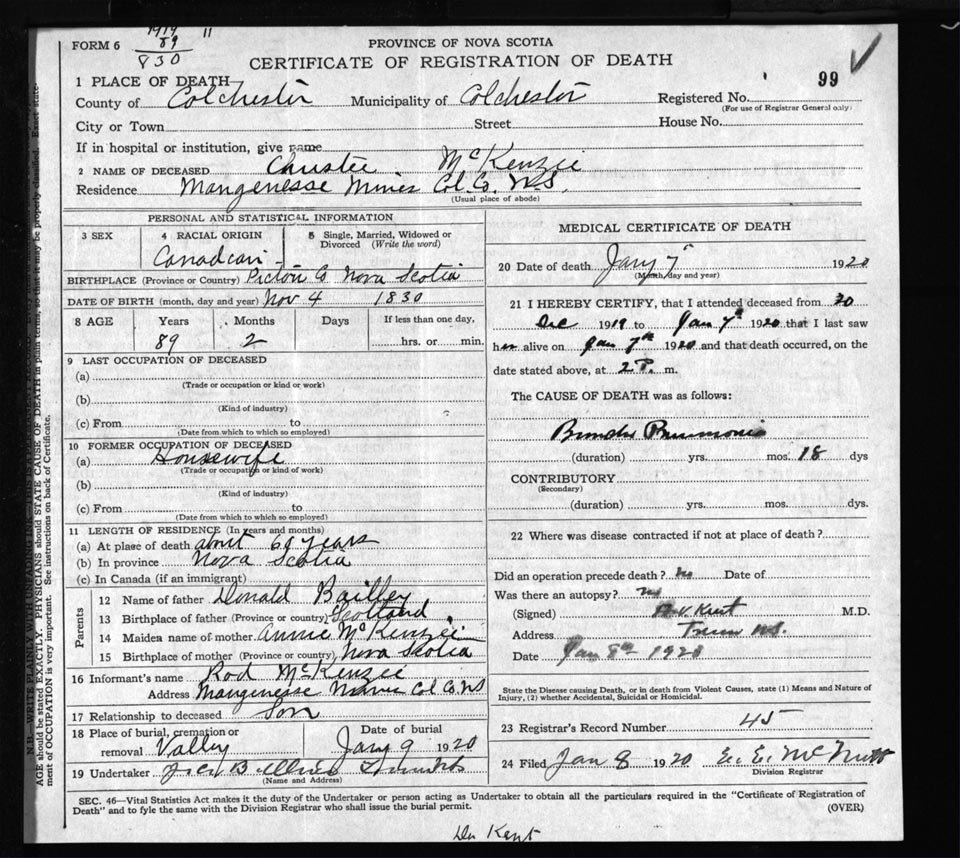 1919 11
FORM 6 89
830
PROVINCE OF NOVA SCOTIA
CERTIFICATE OF REGISTRATION OF DEATH
99
1 PLACE OF DEATH
County of Colchester Municipality of Colchester Registered No.
(For use of Registrar General only)
City or Town Street House No.
If in hospital or institution, give name
2 NAME OF DECEASED Christie McKenzie
Residence Mangenesse Mines Col. Co. N.S.
(Usual place of abode)
PERSONAL AND STATISTICAL INFORMATION
3 SEX 4 RACIAL ORIGIN 5 Single, Married, Widowed or
Divorced (Write the word)
Canadian
BIRTHPLACE (Province or Country) Pictou Co Nova Scotia
DATE OF BIRTH (month, day and year) Nov 4 1830
8 AGE Years Months Days If less than one day,
89 2 hrs. or min.
9 LAST OCCUPATION OF DECEASED
(a)
(Trade or occupation or kind or work)
(b)
(Kind of industry)
(c) From to
(Date from which to which so employed)
10 FORMER OCCUPATION OF DECEASED
(a) Housewife
(Trade or occupation or kind of work)
(b)
(Kind of industry)
(c) From to
(Date from which to which so employed)
11 LENGTH OF RESIDENCE (In years and months)
(a) At place of death about 60 years
(b) In province Nova Scotia
(c) In Canada (if an immigrant)
Parents
12 Name of father Donald Bailley
13 Birthplace of father (Province or country) Scotland
14 Maiden name of mother Annie McKenzie
15 Birthplace of mother (Province or country) Nova Scotia
16 Informant's name Rod McKenzie
Address Mangenesse Mines Col Co. NS
17 Relationship to deceased Son
18 Place of burial, cremation or Date of burial
removal Valley Jany 9 1920
19 Undertaker
(Name and Address)
MEDICAL CERTIFICATE OF DEATH
20 Date of death Jany 7 1920
(Month, day and year)
21 I HEREBY CERTIFY, that I attended deceased from 20
Dec 1919 to Jan 7th 1920 that I last saw
her alive on Jan 7th 1920 and that death occurred, on the
date stated above, at 2 P. m.
The CAUSE OF DEATH was as follows:
Broncho Pneumonia
(duration) yrs. mos. 18 dys
CONTRIBUTORY
(Secondary)
(duration) yrs. mos. dys.
22 Where was disease contracted if not at place of death?
Did an operation precede death? no Date of
Was there an autopsy? no
(Signed) Kent M.D.
Address Truro NS.
Date Jan 8th 1920
State the Disease causing Death, or in death from Violent Causes, state (1) Means and Nature of
Injury, (2) whether Accidental, Suicidal or Homicidal.
23 Registrar's Record Number 45
24 Filed Jan 8 1920 E. E. McNutt
Division Registrar
SEC. 46—Vital Statistics Act makes it the duty of the Undertaker or person acting as Undertaker to obtain all the particulars required in the "Certificate of Registration of
Death" and to fyle the same with the Division Registrar who shall issue the burial permit. (OVER)
Dr Kent
AGE should be stated EXACTLY. PHYSICIANS should STATE CAUSE OF DEATH in plain terms, so that it may be properly classed. Exact state-
ment of OCCUPATION is very important. See instructions on back of Certificate.